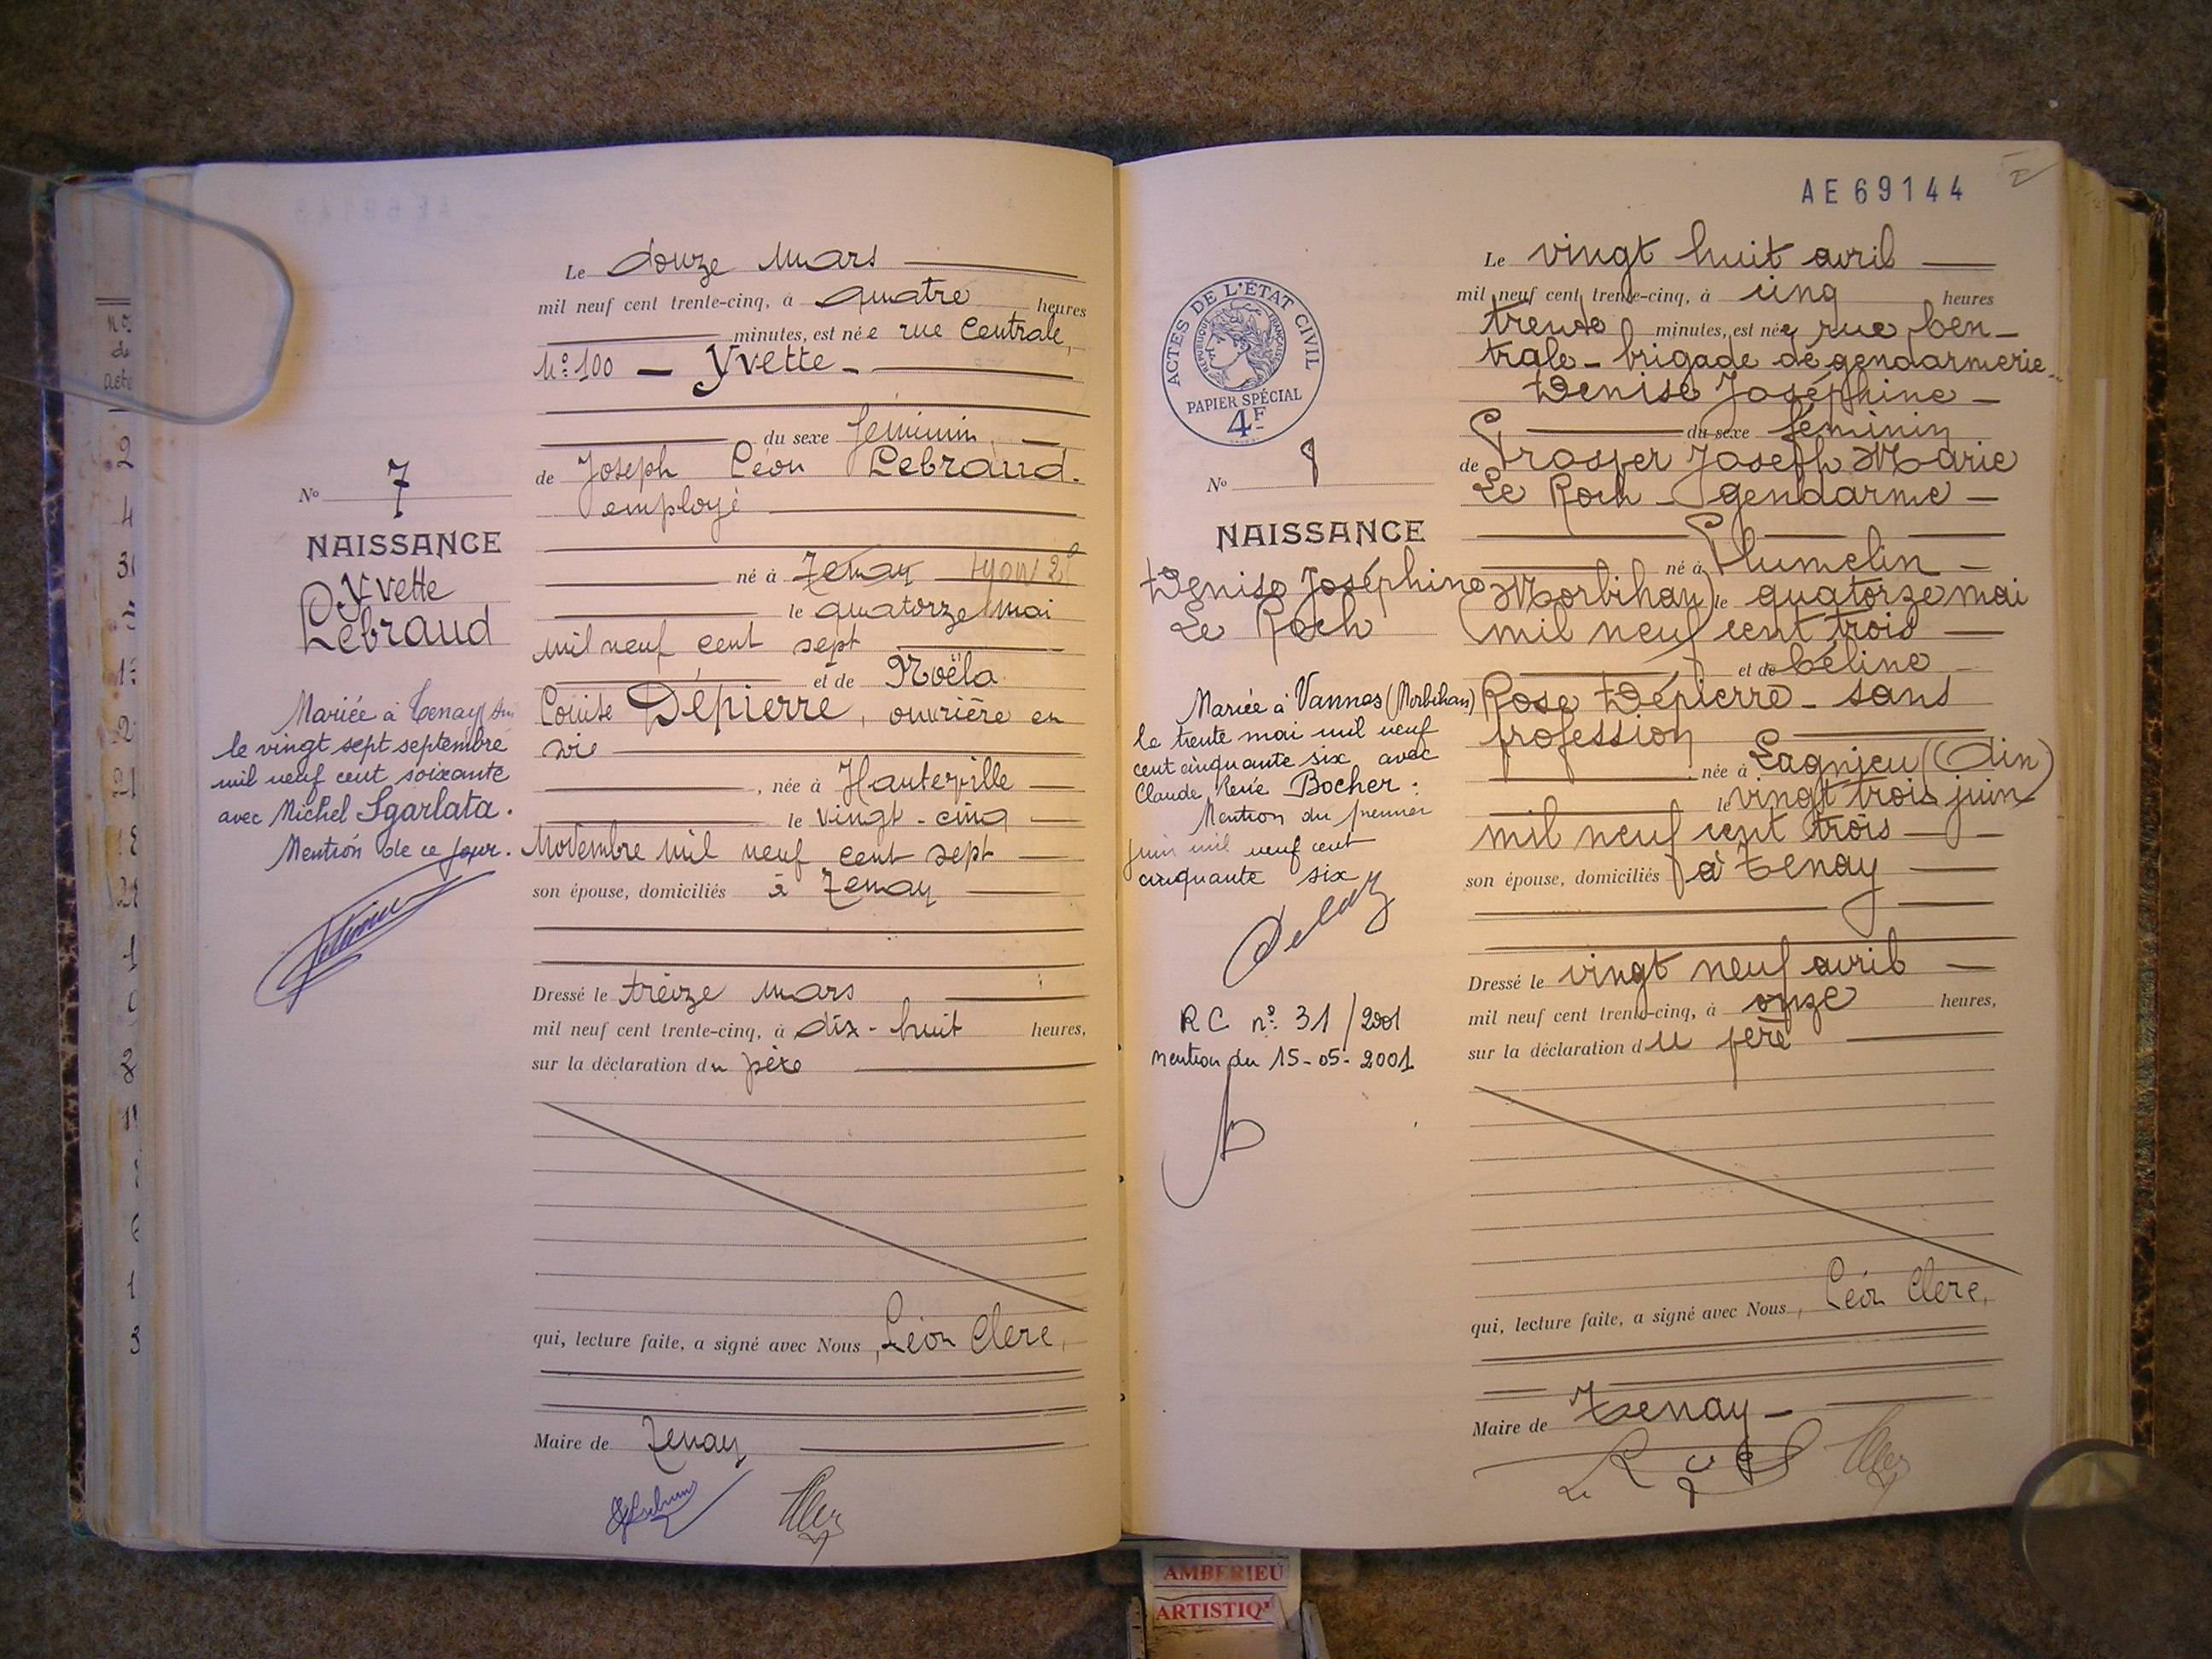 Le douze Mars
mil neuf cent trente-cinq, à quatre heures
minutes, est née rue Centrale,
N° 100 — Yvette —
du sexe féminin,
de Joseph Léon Lebraud.
employé
né à Tenay Lyon 2e
le quatorze mai
mil neuf cent sept
et de Noëla
Louise Dépierre, ouvrière en
soie
, née à Hauteville
le vingt-cinq
Novembre mil neuf cent sept
son épouse, domiciliés à Tenay
Dressé le treize mars
mil neuf cent trente-cinq, à dix-huit heures,
sur la déclaration du père
qui, lecture faite, a signé avec Nous, Léon Clerc,
Maire de Tenay
No 7
NAISSANCE
Yvette
Lebraud
Mariée à Tenay
le vingt sept septembre
mil neuf cent soixante
avec Michel Sgarlata.
Mention de ce jour.
No
de
acte
AE 69144
ACTES DE L'ÉTAT CIVIL
RÉPUBLIQUE FRANÇAISE
PAPIER SPÉCIAL
4F
No 8
NAISSANCE
Denise Joséphine
Le Roch
Mariée à Vannes (Morbihan)
le trente mai mil neuf
cent cinquante six avec
Claude, René Bocher.
Mention du premier
juin mil neuf cent
cinquante six
RC n° 31/2001
mention du 15-05-2001
Le vingt huit avril
mil neuf cent trente-cinq, à cinq heures
trente minutes, est née rue Cen-
trale - brigade de gendarmerie -
Denise Joséphine -
du sexe féminin
de Prosper Joseph Marie
Le Roch - gendarme -
né à Plumelin -
(Morbihan) le quatorze mai
mil neuf cent trois
et de Céline
Rose Dépierre - sans
profession
née à Lagnieu (Ain)
le vingt trois juin
mil neuf cent trois
son épouse, domiciliés à Tenay
Dressé le vingt neuf avril
mil neuf cent trente-cinq, à onze heures,
sur la déclaration du père
qui, lecture faite, a signé avec Nous, Léon Clerc,
Maire de Tenay -
AMBERIEU
ARTISTIQ